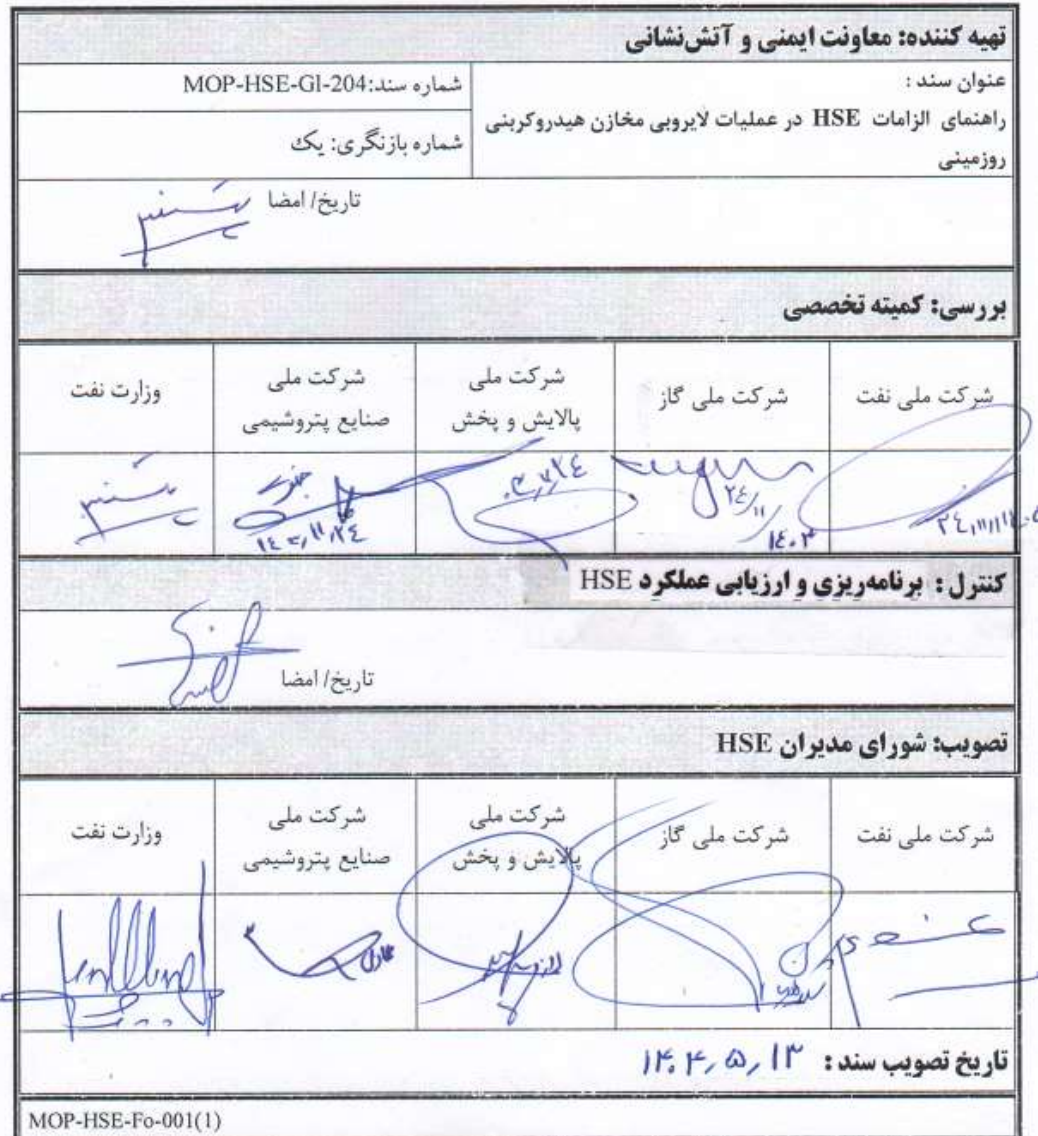 تهیه کننده: معاونت ایمنی و آتش‌نشانی
عنوان سند :
راهنمای الزامات HSE در عملیات لایروبی مخازن هیدروکربنی
روزمینی
شماره سند:MOP-HSE-Gl-204
شماره بازنگری: یک
تاریخ/ امضا
بررسی: کمیته تخصصی
شرکت ملی نفت
شرکت ملی گاز
شرکت ملی
پالایش و پخش
شرکت ملی
صنایع پتروشیمی
وزارت نفت
کنترل : برنامه‌ریزی و ارزیابی عملکرد HSE
تاریخ/ امضا
تصویب: شورای مدیران HSE
شرکت ملی نفت
شرکت ملی گاز
شرکت ملی
پالایش و پخش
شرکت ملی
صنایع پتروشیمی
وزارت نفت
تاریخ تصویب سند : ۱۴۰۴٫۵٫۱۳
MOP-HSE-Fo-001(1)